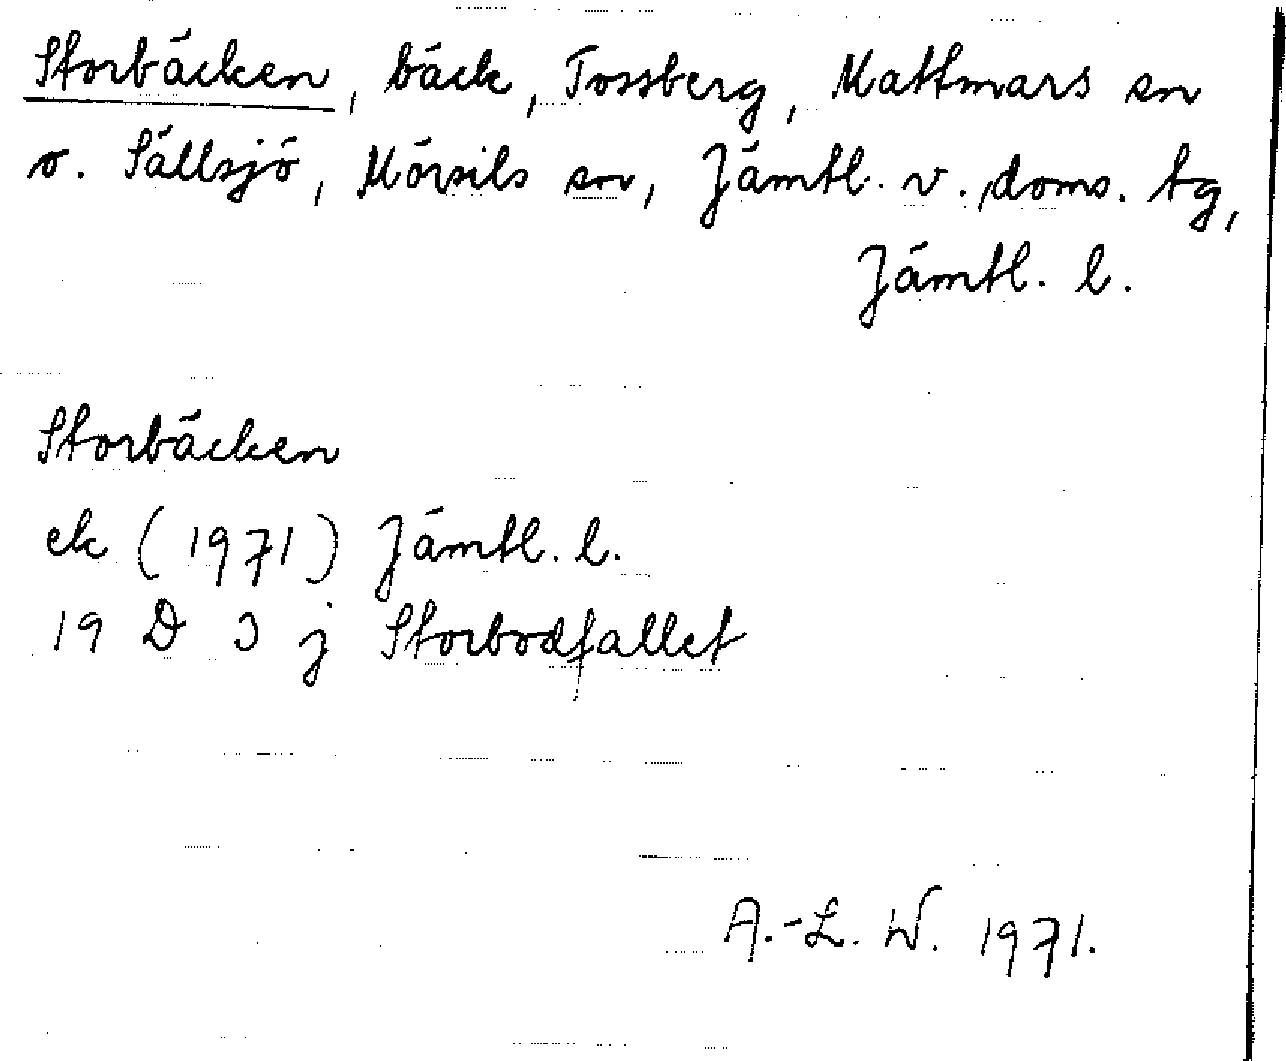 Storbäcken, bäck, Tossberg, Mattmars sn
o. Sällsjö, Mörsils sn, Jämtl. v. doms. tg,
Jämtl. l.
Storbäcken
ek (1971) Jämtl. l.
19 D 3 j Storbodfallet
A.-L. W. 1971.